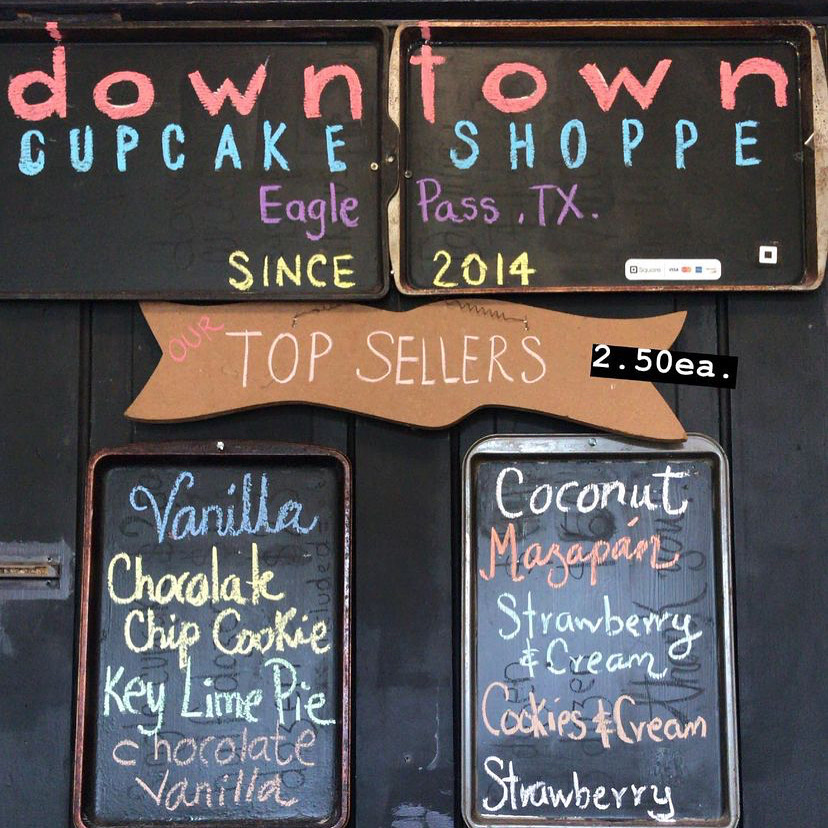 downtown
CUPCAKE SHOPPE
Eagle Pass, TX.
SINCE 2014
Square VISA
OUR TOP SELLERS 2.50ea.
Vanilla
Chocolate
Chip Cookie
Key Lime Pie
chocolate
vanilla
Coconut
Mazapán
Strawberry
& Cream
Cookies & Cream
Strawberry